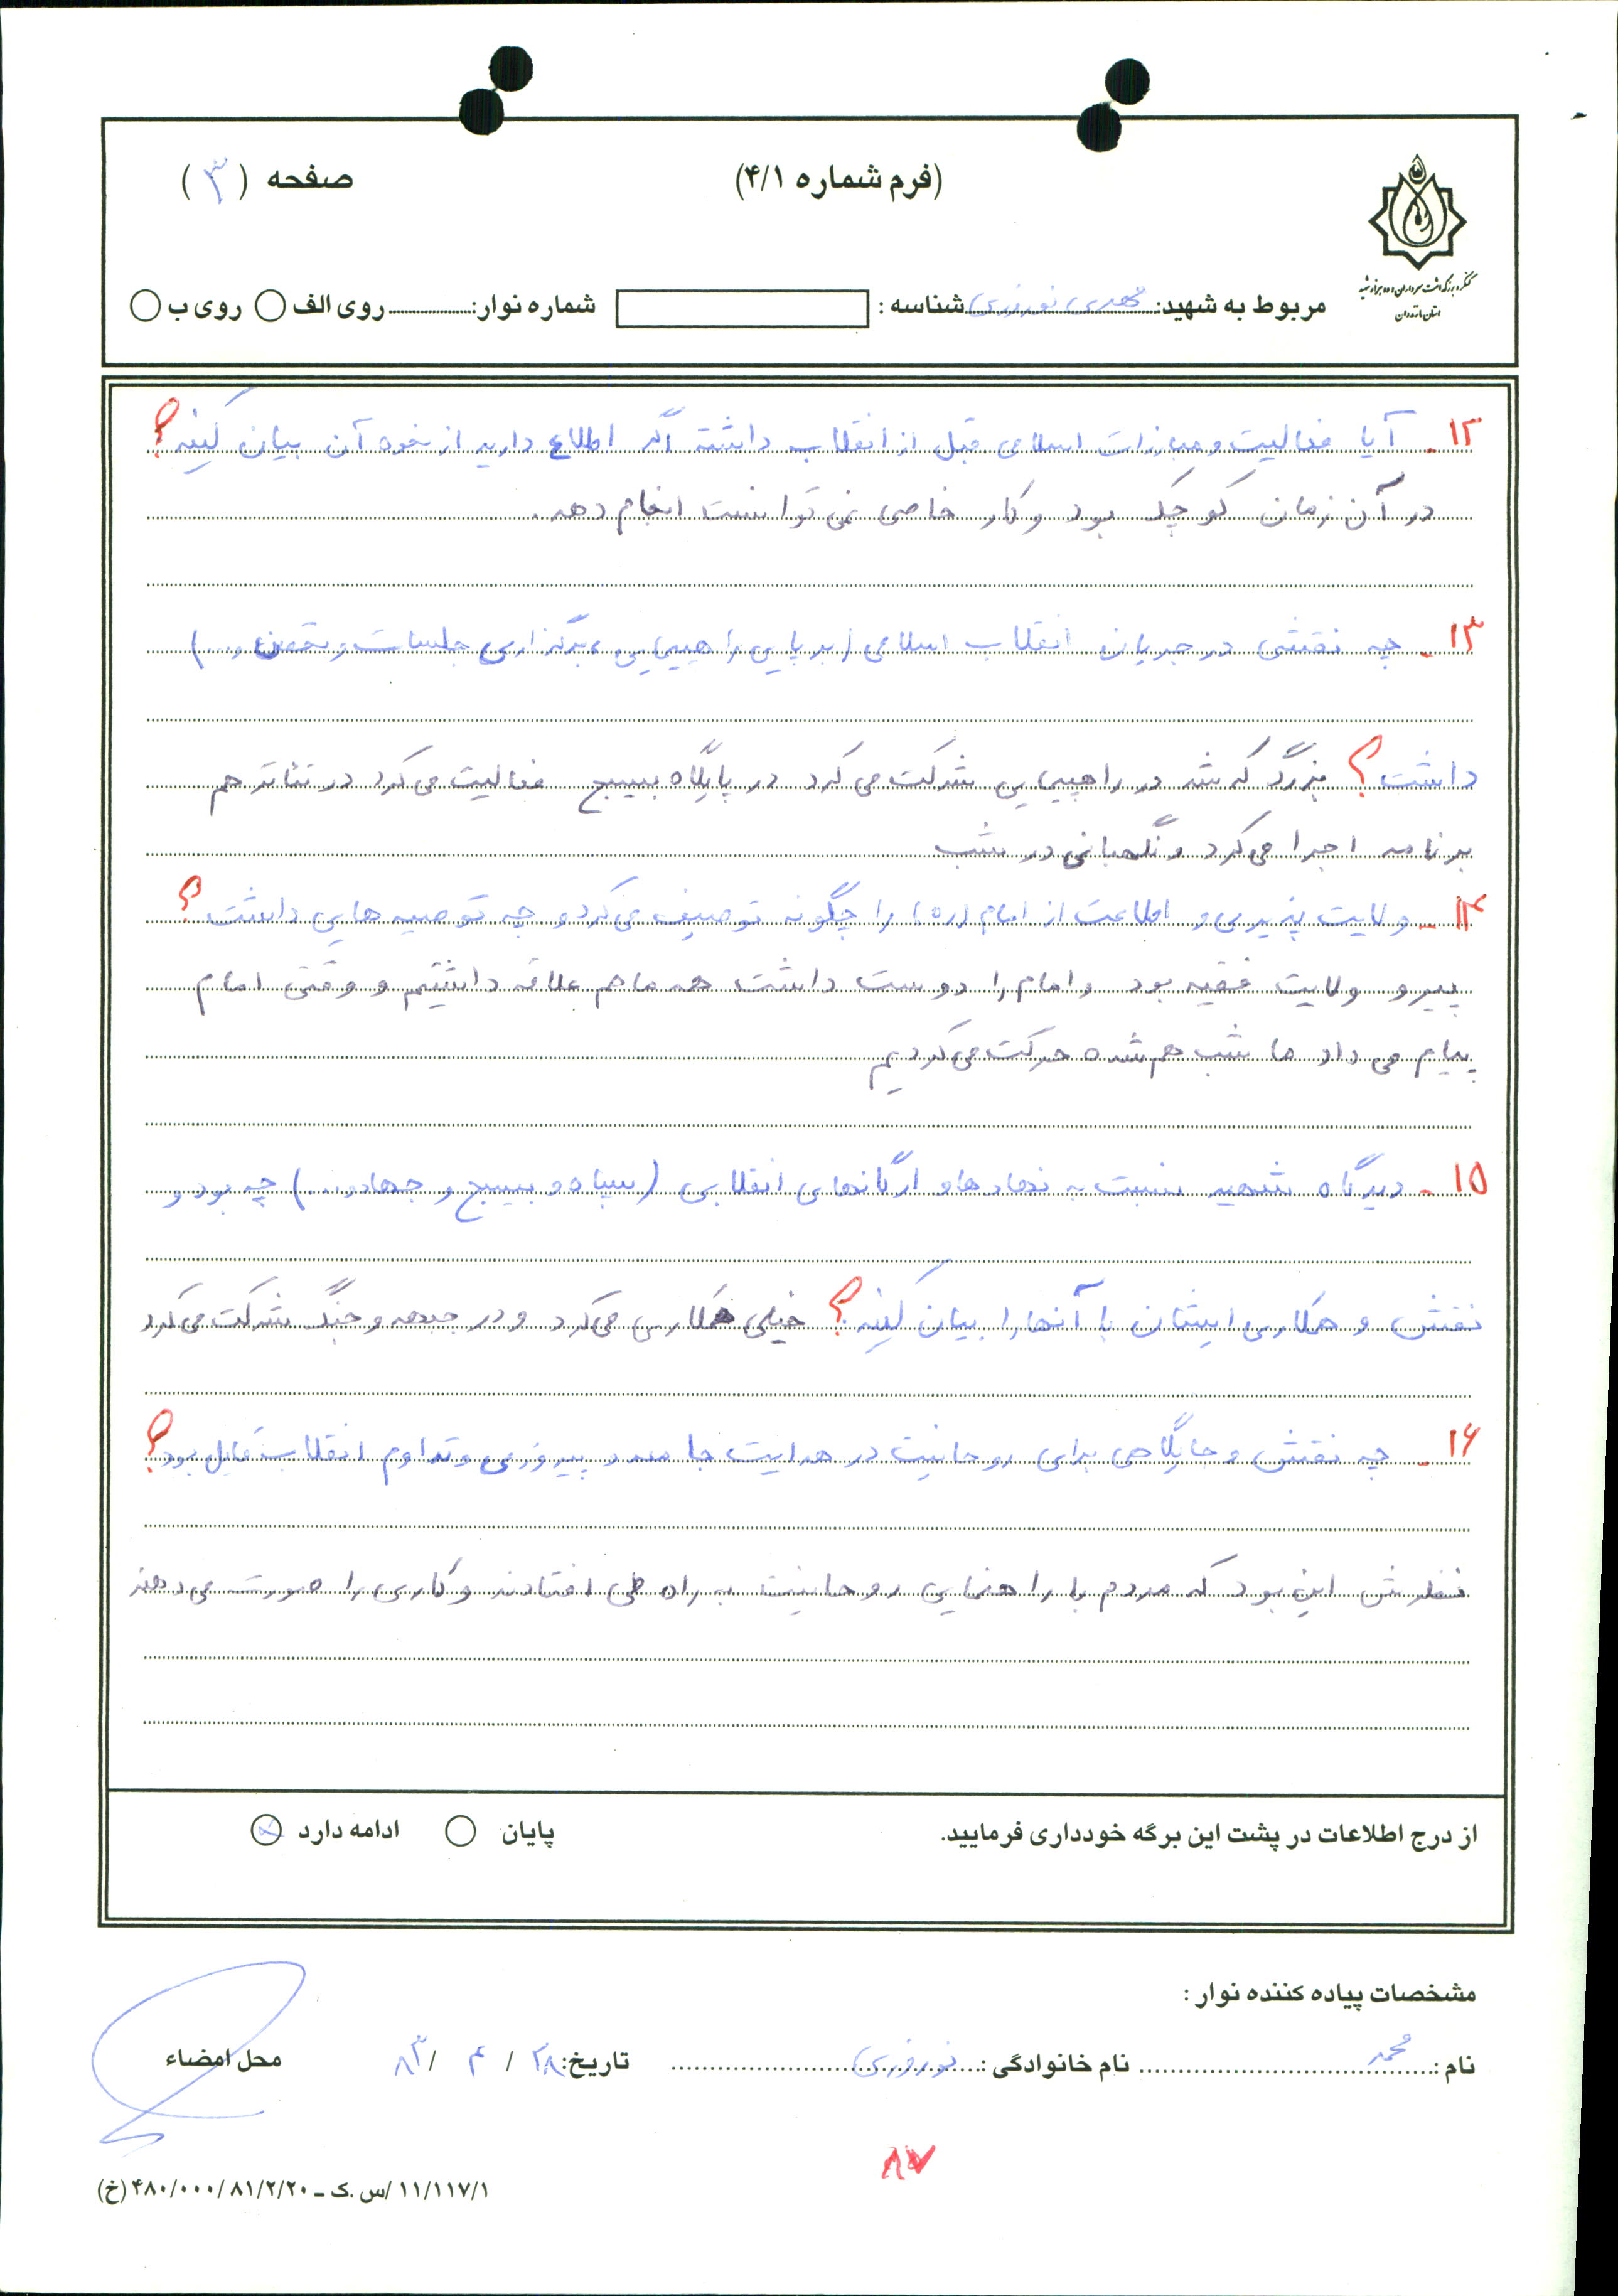 (فرم شماره ۴/۱)
صفحه (۳)
کنگره بزرگداشت سرداران و ده هزار شهید
استان مازندران
مربوط به شهید: مهدی نوروزی شناسه: شماره نوار: روی الف روی ب
۱۲- آیا فعالیت و مبارزات اسلامی قبل از انقلاب داشته اگر اطلاع دارید از نحوه آن بیان کنید؟
در آن زمان کوچک بود و کار خاصی نمی توانست انجام دهد.
۱۳- چه نقشی در جریان انقلاب اسلامی (برپایی راهپیمایی، برگزاری جلسات و تحصن و...)
داشت؟ بزرگ که شد در راهپیمایی شرکت می کرد در پایگاه بسیج فعالیت می کرد در تئاتر هم
برنامه اجرا می کرد و نگهبانی در شب
۱۴- ولایت پذیری و اطاعت از امام (ره) را چگونه توصیف می کرد و چه توصیه هایی داشت؟
پیرو ولایت فقیه بود و امام را دوست داشت همه ما هم علاقه داشتیم و وقتی امام
پیام می داد ما شب هم شده حرکت می کردیم
۱۵- دیدگاه شهید نسبت به نهادها و ارگانهای انقلابی (سپاه و بسیج و جهاد و...) چه بود و
نقش و همکاری ایشان با آنها را بیان کنید؟ خیلی همکاری می کرد و در جبهه و جنگ شرکت می کرد
۱۶- چه نقش و جایگاهی برای روحانیت در هدایت جامعه و پیروزی و تداوم انقلاب قایل بود؟
نظرش این بود که مردم با راهنمایی روحانیت به راه می افتادند و کاری را صورت می دهند
از درج اطلاعات در پشت این برگه خودداری فرمایید.
ادامه دارد پایان
مشخصات پیاده کننده نوار:
نام: محمد نام خانوادگی: نوروزی تاریخ: ۲۸ / ۴ / ۸۳ محل امضاء
۸۷
۱۱/۱۱۷/۱/س.ک ـ ۴۸۰/۰۰۰/۸۱/۲/۲۰ (خ)